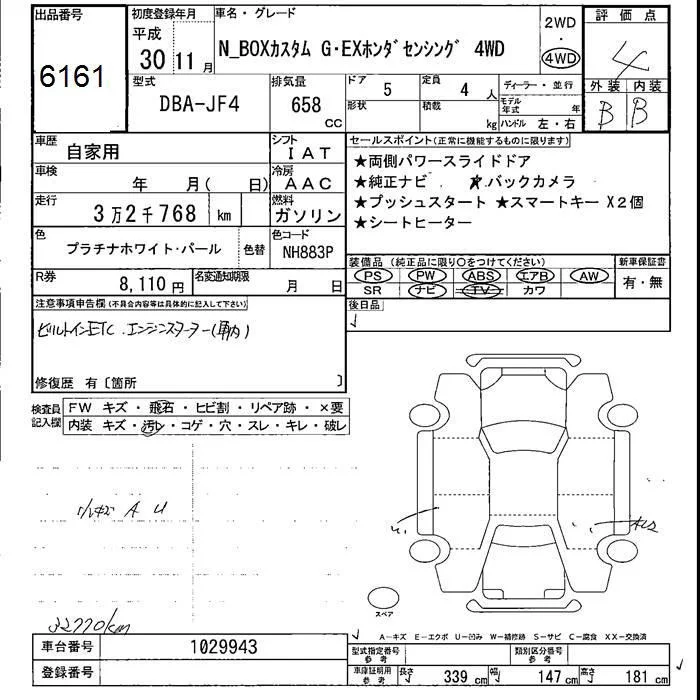 出品番号
6161
初度登録年月
平成
30 11 月
車名・グレード
N_BOXカスタム G・EXホンダセンシング 4WD
2WD
・
4WD
評価点
4
外装 内装
B B
型式
DBA-JF4
排気量
658
CC
ドア
5
定員
4 人
形状
積載
kg
ディーラー・並行
モデル年式 年
ハンドル 左・右
車歴
自家用
シフト
IAT
車検
年 月( 日)
冷房
AAC
走行
3万2千768 km
燃料
ガソリン
色
プラチナホワイト・パール
色替
色コード
NH883P
R券
8,110 円
名変通知期限
月 日
セールスポイント(正常に機能するものに限ります)
★両側パワースライドドア
★純正ナビ ★.バックカメラ
★プッシュスタート ★スマートキー X2個
★シートヒーター
装備品(純正品に限り〇をつけてください)
新車保証書
PS PW ABS エアB AW
SR ナビ TV カワ
有・無
後日品
注意事項申告欄(不具合内容等は具体的に記入して下さい)
ビルトインETC.エンジンスターター(車内)
修復歴 有〔箇所 〕
検査員
記入欄
FW キズ・飛石・ヒビ割・リペア跡・×要
内装 キズ・汚レ・コゲ・穴・スレ・キレ・破レ
A U
32770km
スペア
A-キズ E-エクボ U-凹み W-補修跡 S-サビ C-腐食 XX-交換済
車台番号
1029943
登録番号
型式指定番号
参考
類別区分番号
参考
車庫証明用
参考
長さ 339 cm 幅 147 cm 高さ 181 cm